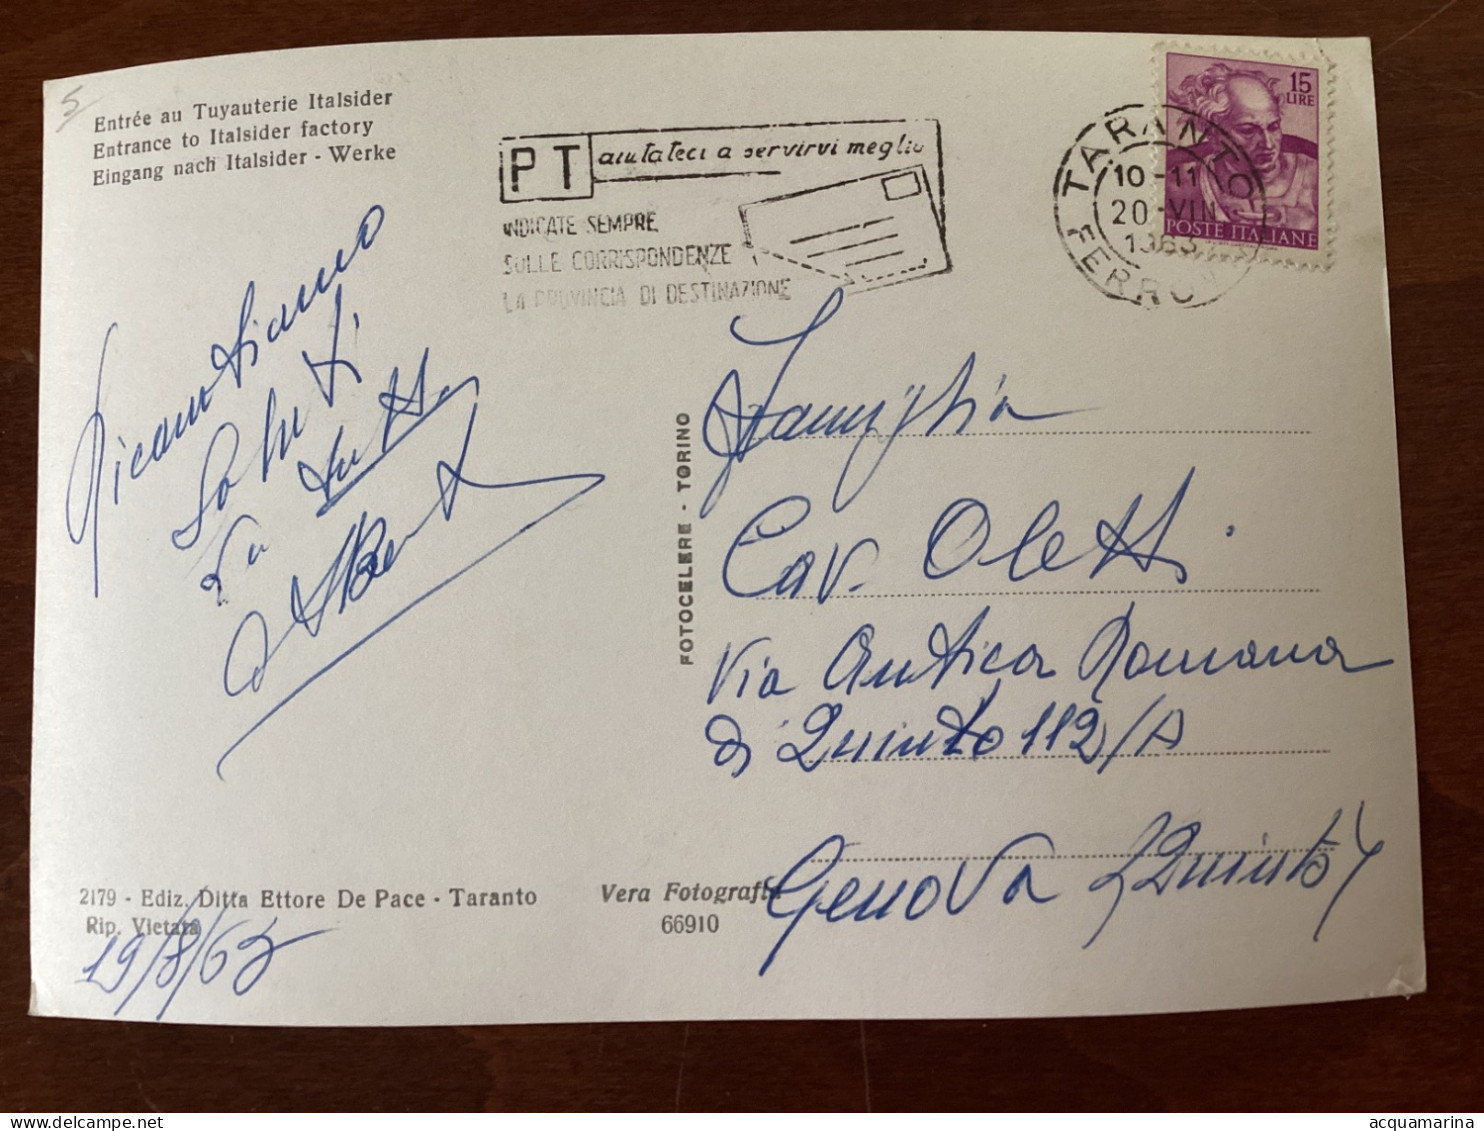 5
Entrée au Tuyauterie Italsider
Entrance to Italsider factory
Eingang nach Italsider - Werke
PT aiutateci a servirvi meglio
INDICATE SEMPRE
SULLE CORRISPONDENZE
LA PROVINCIA DI DESTINAZIONE
TARANTO
10-11
20-VIII
1963
FERROV
15
LIRE
POSTE ITALIANE
Ricambiamo
Saluti
Tutti
Famiglia
Cav. Oletti
Via Antica Romana
di Quinto 112/A
Genova (Quinto)
FOTOCELERE - TORINO
2179 - Ediz. Ditta Ettore De Pace - Taranto
Rip. Vietata
Vera Fotografia
66910
19/8/63
acquamarina